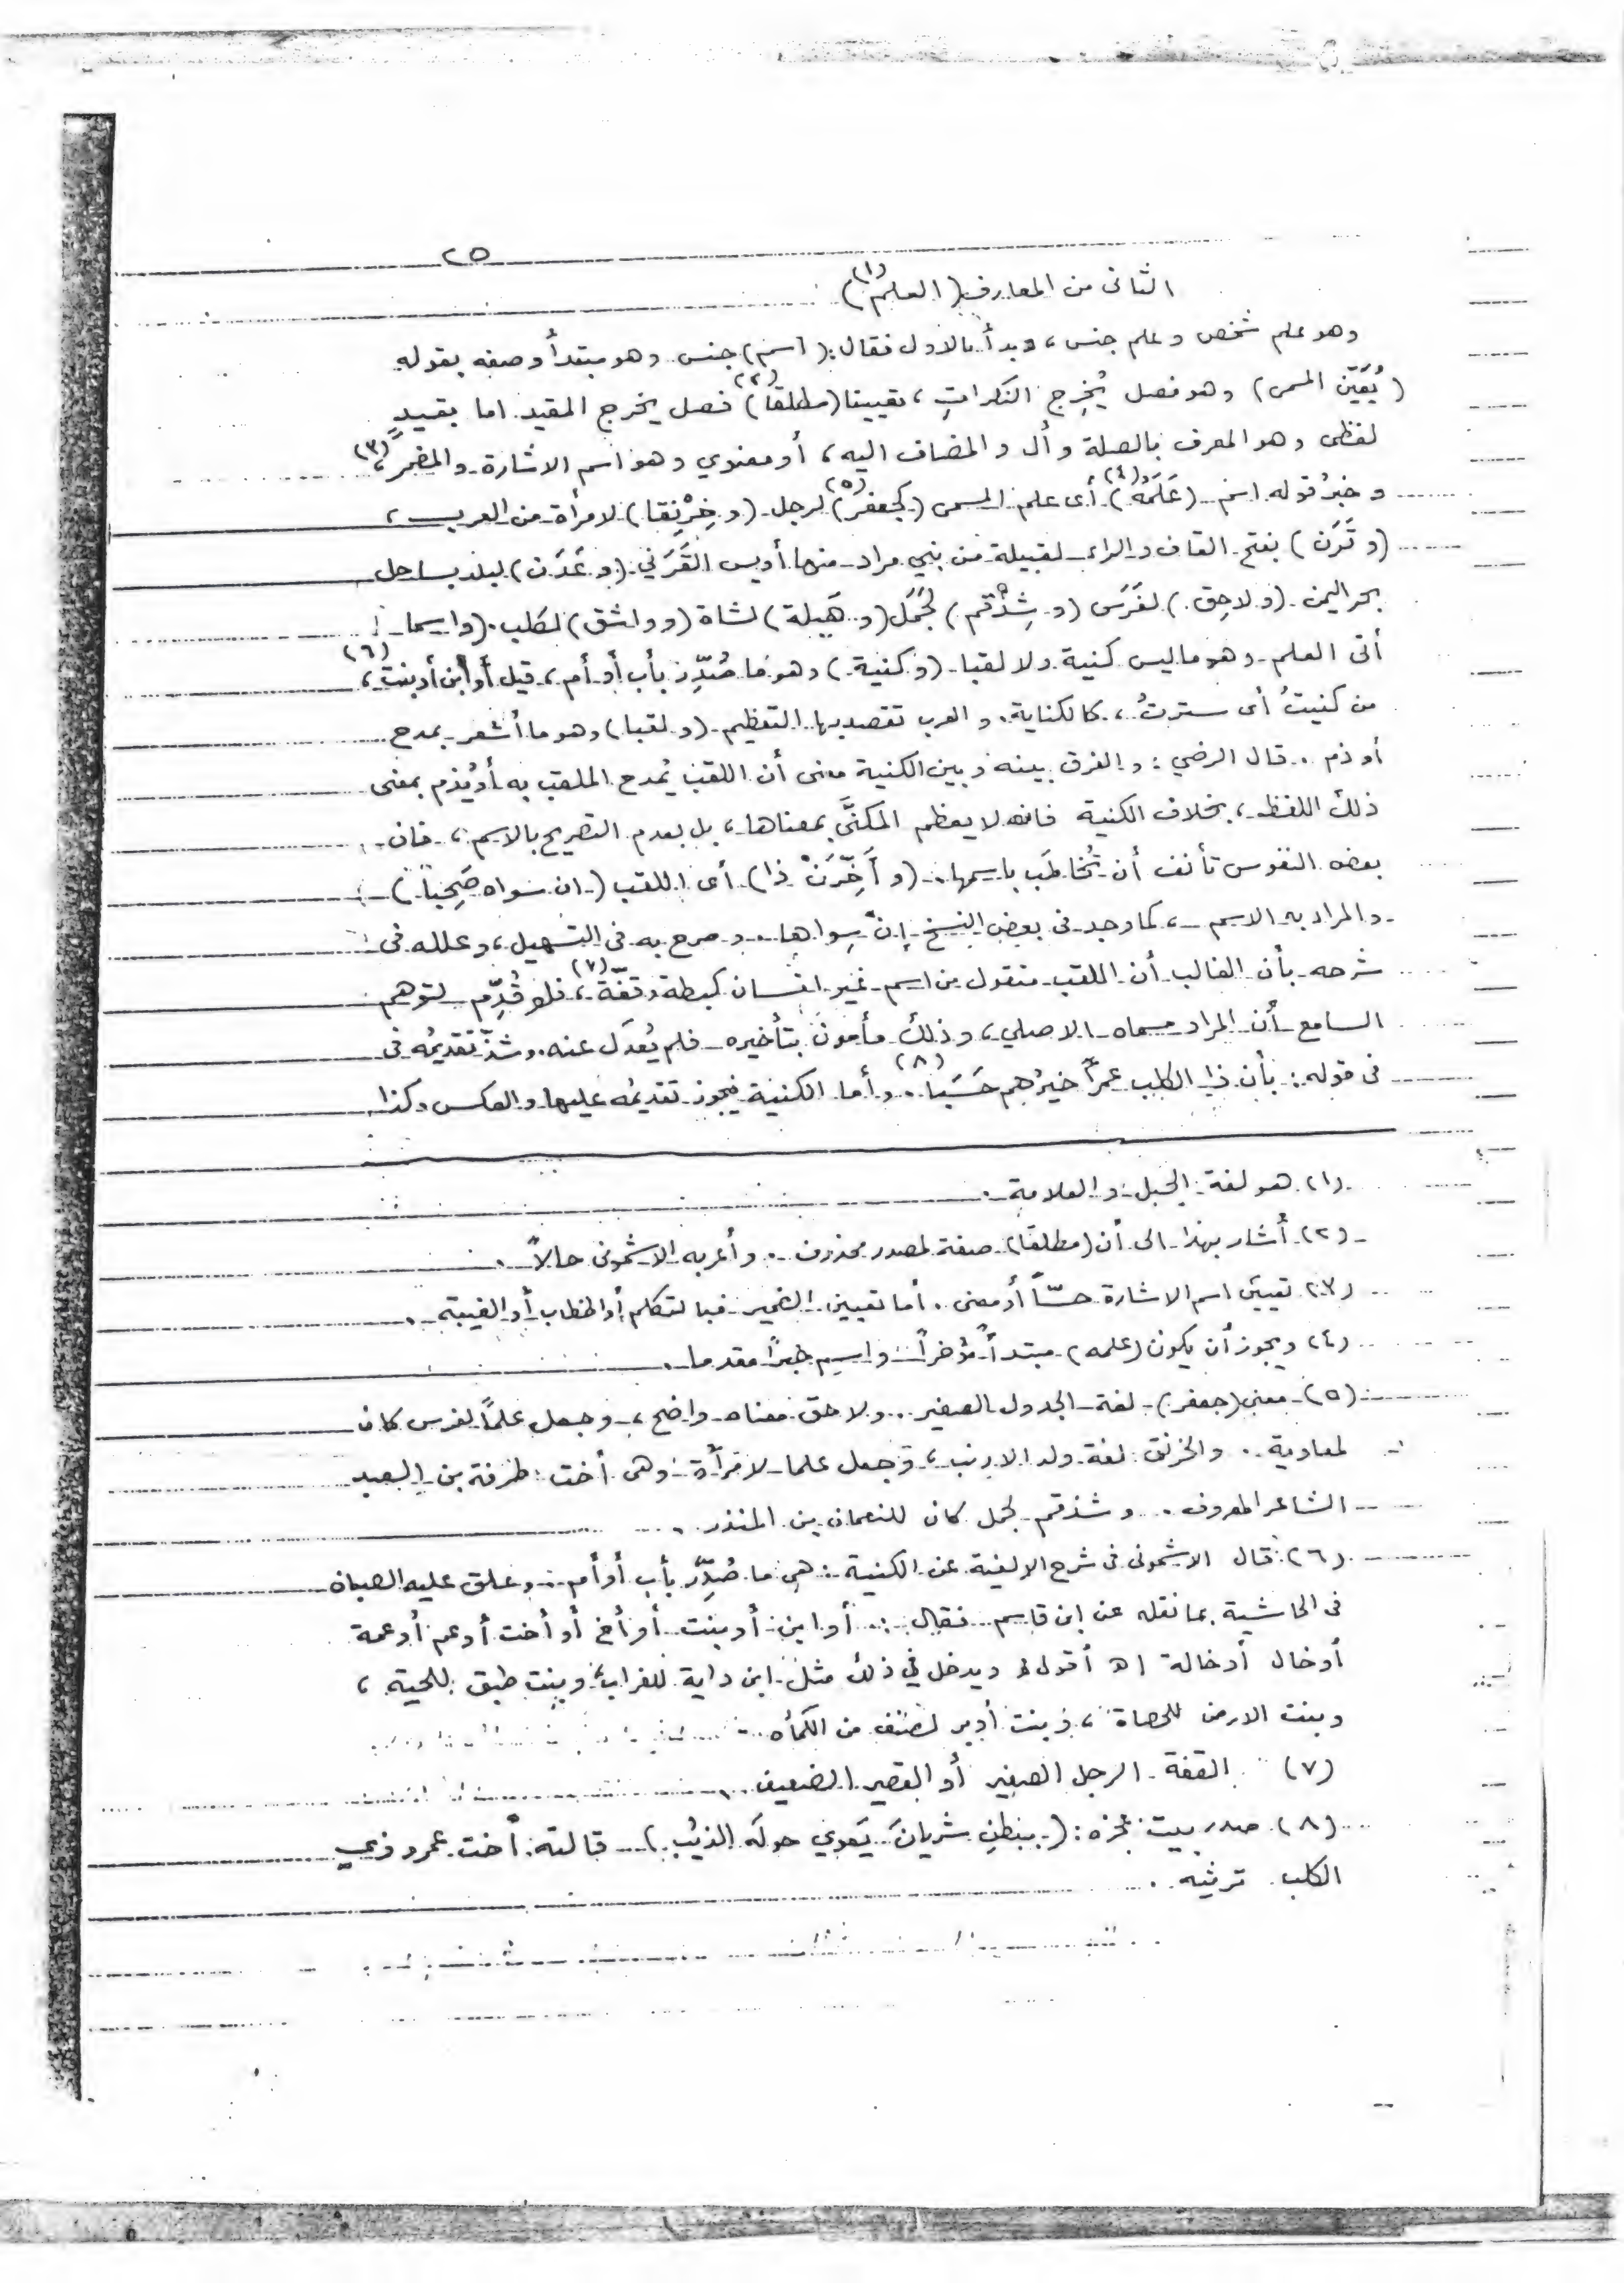 ٢٥
الثانى من المعارف (العلم)(١)
وهو علم شخص وعلم جنس، وبدأ بالاول فقال: (اسم) جنس وهو مبتدأ وصفه بقوله
(يُعَيّن المسمى) وهو فصل يُخرِج النكراتِ، تعيينا (مطلقا)(٢) فصل يخرج المقيد. اما بقيدٍ
لفظى وهو المعرف بالصلة وأل والمضاف اليه، أو معنوي وهو اسم الاشارة والمضمر،(٣)
وخبرُ قوله اسم (عَلَمُهُ)(٤) أى علم المسمى (كجعفر)(٥) لرجل (وخِرْنِقا) لامرأة من العرب،
(وقَرَن) بفتح القاف والراء لقبيلة من بني مراد منها أويس القَرَني (وعَدَن) لبلد بساحل
بحر اليمن (ولاحِق) لفَرَس (وشِذْقم) لجَمَل (وهَيلة) لشاة (وواشق) لكلب. (واسما
أتى العلم وهو ما ليس كنية ولا لقبا (وكنية) وهو ما صُدِّر بأب أو أم، قيل أو ابن أو بنت،(٦)
من كنيتُ أى سترتُ، كالكناية. والعرب تقصد بها التعظيم (ولقبا) وهو ما أشعر بمدح
أو ذم. قال الرضي: والفرق بينه وبين الكنية معنى أن اللقب يُمدح الملقب به أو يُذم بمعنى
ذلك اللفظ، بخلاف الكنية فانه لا يعظم المكنَّى بمعناها، بل بعدم التصريح بالاسم، فان
بعض النفوس تأنف أن تُخاطَب باسمها. (وأخِّرَنْ ذا) أى اللقب (ان سواه صَحِبا)
والمراد به الاسم، كما وجد فى بعض النسخ إنْ سِواها. وصرح به فى التسهيل، وعلله فى
شرحه بأن الغالب أن اللقب منقول من اسم غير انسان كبطة وقفّة(٧)، فلو قُدِّم لتوهم
السامع أن المراد مسماه الاصلي، وذلك مأمون بتأخيره فلم يُعدَل عنه. وشذّ تقديمُه فى
فى قوله: بأن ذا الكلب عمراً خيرُهم حَسَبا(٨). وأما الكنية فيجوز تقديمُه عليها والعكس وكذا
(١) هو لغة الجبل والعلامة.
(٢) أشار بهذا الى أن (مطلقا) صفة لمصدر محذوف. وأعربه الاشمونى حالاً.
(٣) تعيين اسم الاشارة حسّاً أو معنى. أما تعيين الضمير فبالتكلم أو الخطاب أو الغيبة.
(٤) ويجوز أن يكون (علمه) مبتدأ مؤخراً واسم خبراً مقدما.
(٥) معنى (جعفر) لغة الجدول الصغير.. ولاحق معناه واضح، وجعل علماً لفرس كان
لمعاوية.. والخرنق لغة ولد الارنب، وجعل علما لامرأة وهى أخت طرفة بن العبد
الشاعر المعروف. وشذقم لجمل كان للنعمان بن المنذر.
(٦) قال الاشمونى فى شرح الالفية عن الكنية: هى ما صُدِّر بأب أو أم.. وعلق عليه الصبان
فى الحاشية بما نقله عن ابن قاسم فقال: أو ابن أو بنت أو أخ أو أخت أو عم أو عمة
أو خال أو خالة اه أقول: ويدخل في ذلك مثل ابن داية للغراب، وبنت طبق للحية،
وبنت الارض للحصاة، وبنت أوبر لصنف من الكمأه
(٧) القفة الرجل الصغير أو القصير الضعيف.
(٨) صدر بيت عجزه: (ببطنِ شريانَ يَعوي حولَه الذيبُ) قالته أخت عمرو ذي
الكلب ترثيه.